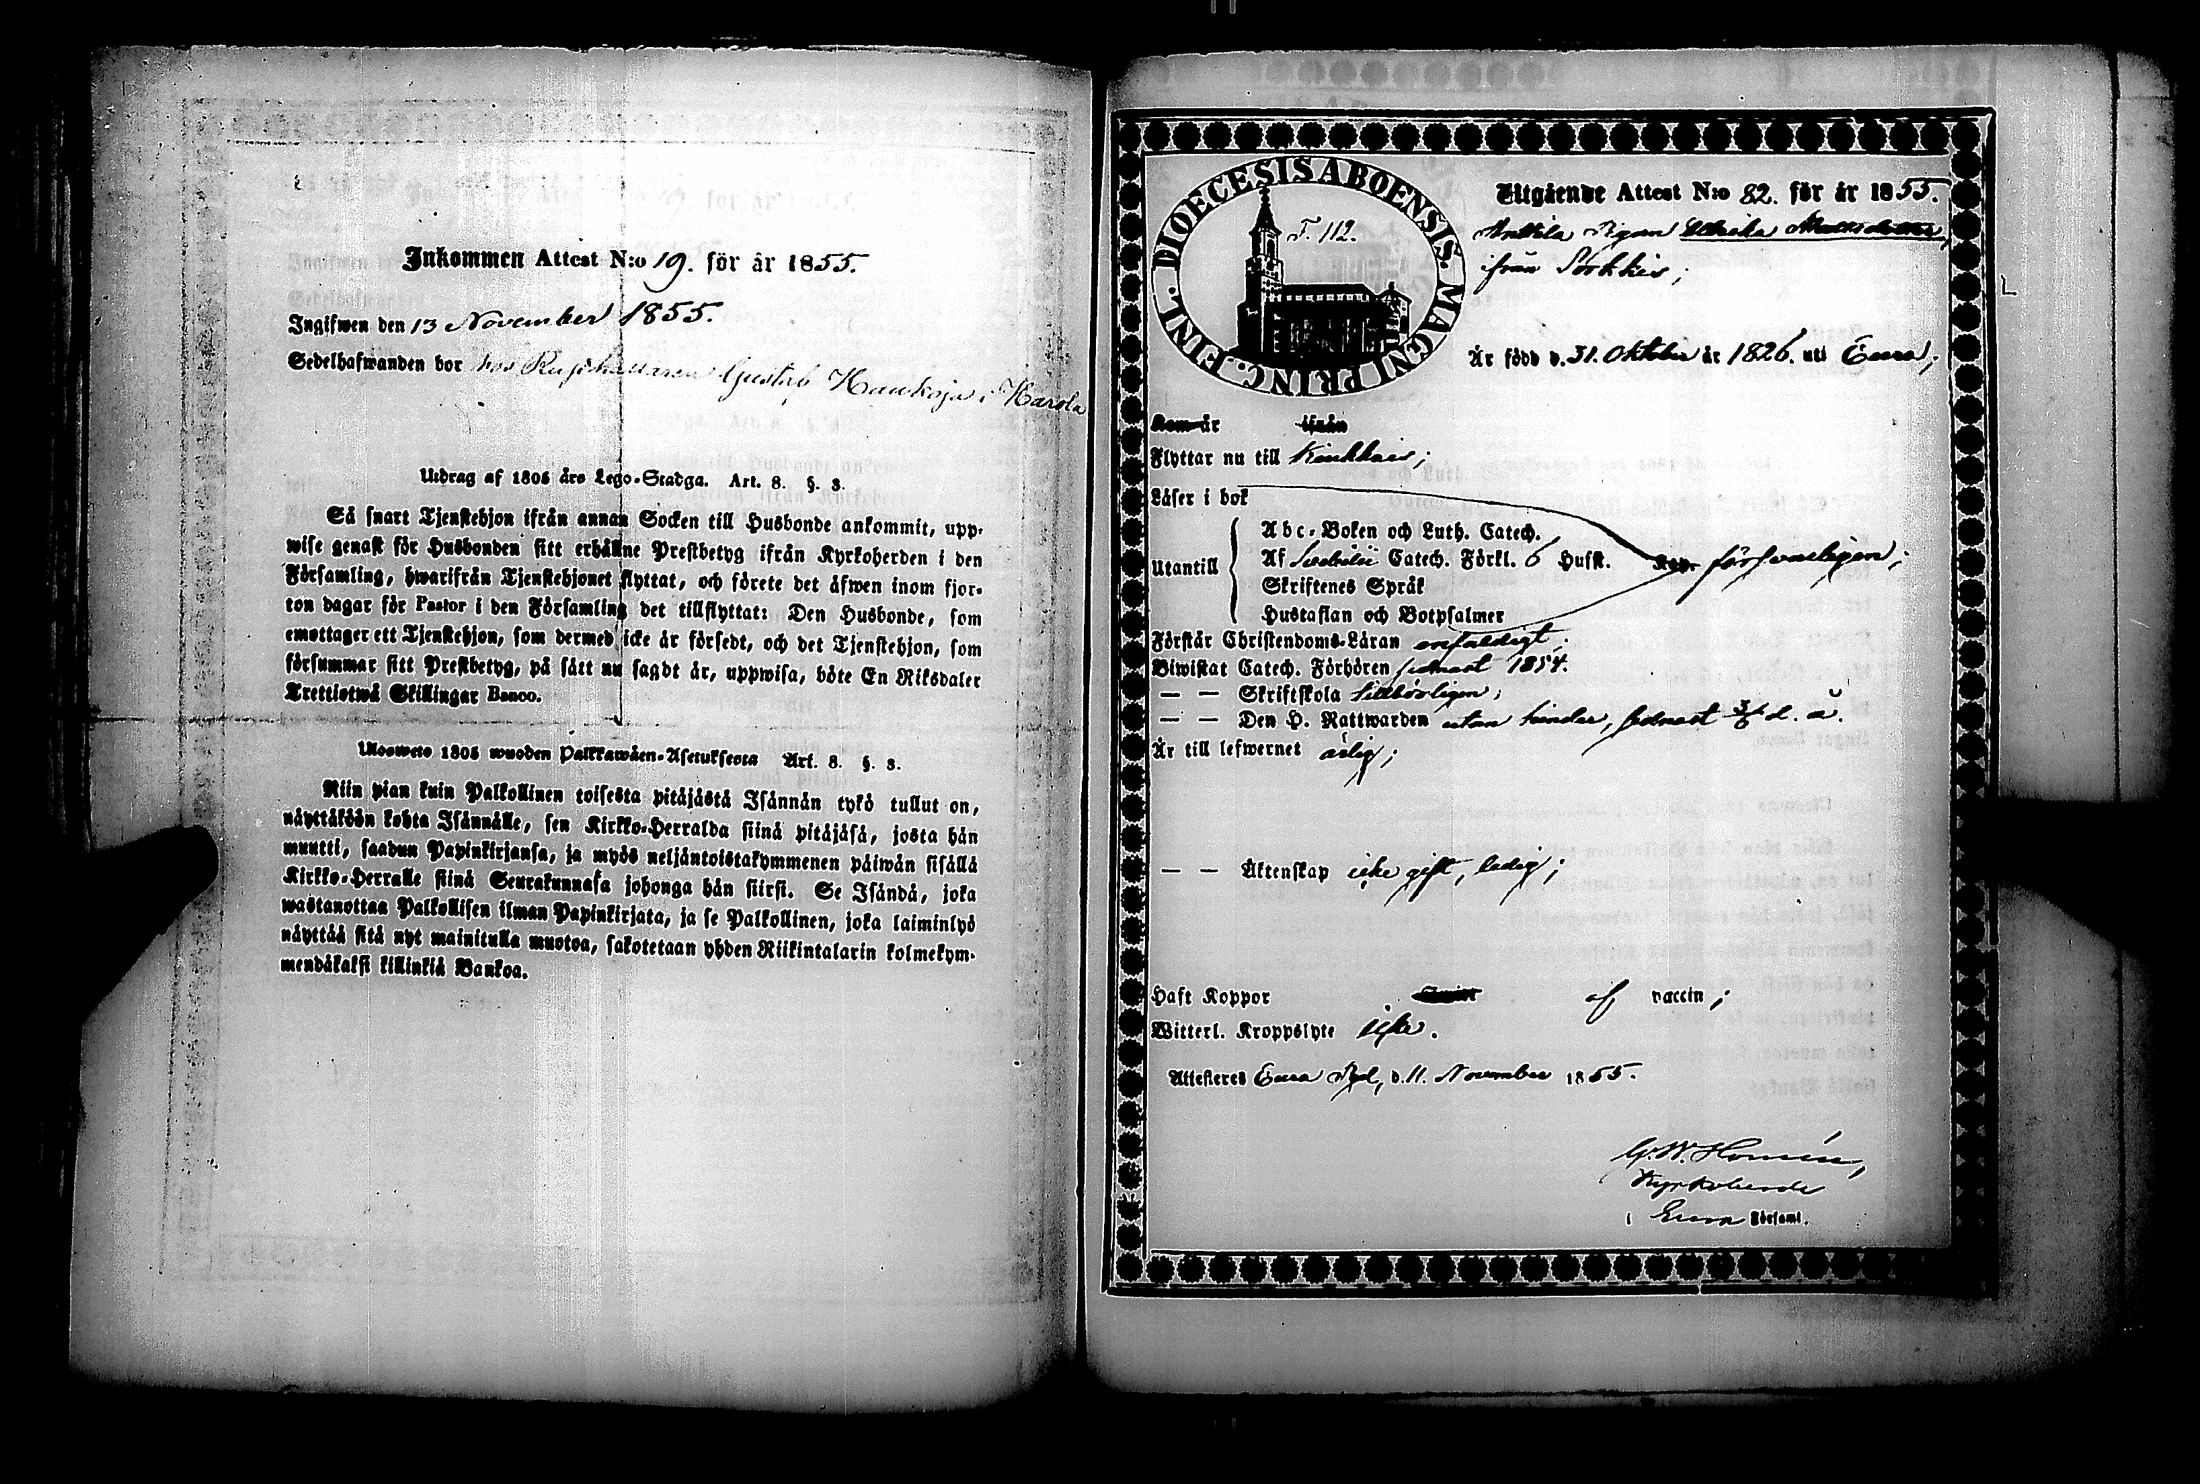 Inkommen Attest N:o 19. för år 1855.
Ingifwen den 13 November 1855.
Sedelhafwanden bor hos Rusthållaren Gustaf Haukoja i Harola
Utdrag af 1805 års Lego-Stadga. Art. 8. §. 3.
Så snart Tjenstehjon ifrån annan Socken till Husbonde ankommit, upp-
wise genast för Husbonden sitt erhållne Prestbetyg ifrån Kyrkoherden i den
Församling, hwarifrån Tjenstehjonet flyttat, och förete det äfwen inom fjor-
ton dagar för Pastor i den Församling det tillflyttat: Den Husbonde, som
emottager ett Tjenstehjon, som dermed icke är försedt, och det Tjenstehjon, som
försummar sitt Prestbetyg, på sätt nu sagdt är, uppwisa, böte En Riksdaler
Trettiotwå Skillingar Banco.
Ulosweto 1805 wuoden Palkkawäen-Asetuksesta Art. 8. §. 3.
Niin pian kuin Palkollinen toisesta pitäjästä Isännän tykö tullut on,
näyttäköön kohta Isännälle, sen Kirkko-Herralda siinä pitäjäsä, josta hän
muutti, saadun Papinkirjansa, ja myös neljäntoistakymmenen päiwän sisällä
Kirkko-Herralle siinä Seurakunnasa johonga hän siirsi. Se Isändä, joka
wastanottaa Palkollisen ilman Papinkirjata, ja se Palkollinen, joka laiminlyö
näyttää sitä nyt mainitulla muotoa, sakotetaan yhden Riikintalarin kolmekym-
mendäkaksi killinkiä Bankoa.
DIOECESIS ABOENSIS. MAGNI PRINC. FINL.
T. 112.
Utgående Attest N:o 82. för år 1855.
Anttila Pigan Ulrika Mattsdotter,
ifrån Sorkkis;
Är född d. 31. Oktober år 1826. uti Eura;
Kom år ifrån
Flyttar nu till Kiukkais;
Läser i bok
Utantill
Abc-Boken och Luth. Catech.
Af Svebilii Catech. Förkl. 6 Hufst. försvarligen;
Skriftenes Språk
Hustaflan och Botpsalmer
Förstår Christendoms-Läran enfaldigt;
Biwistat Catech. Förhören sednast 1854.
— — Skriftskola tillbörligen;
— — Den H. Nattwarden utan hinder, sednast 3/6 d. å.
Är till lefwernet ärlig;
— — Äktenskap icke gift, ledig;
Haft Koppor af vaccin;
Witterl. Kroppslyte icke.
Attesteras Eura Pgd, d. 11. November 1855.
G. W. Homén,
Kyrkoherde
i Eura Församl.